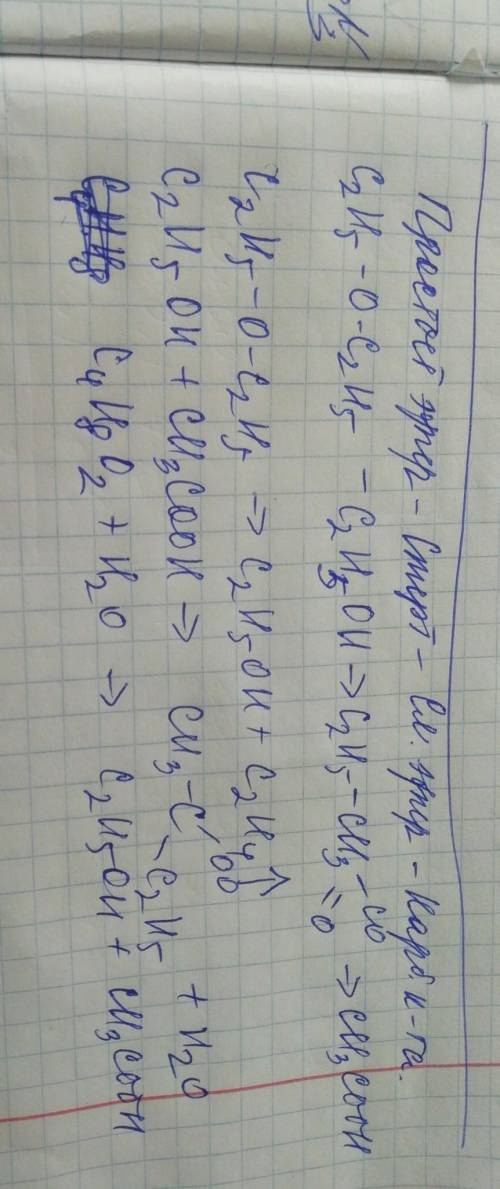 Простой эфир - Спирт - Сл. эфир - Карб. к-та.
C2H5 - O - C2H5 - C2H5OH → C2H5 - CH3 - CO = O → CH3COOH
C2H5 - O - C2H5 ⇒ C2H5OH + C2H4↑
C2H5OH + CH3COOH ⇒ CH3 - C - C2H5 + H2O
C4H8O2 + H2O → C2H5OH + CH3COOH